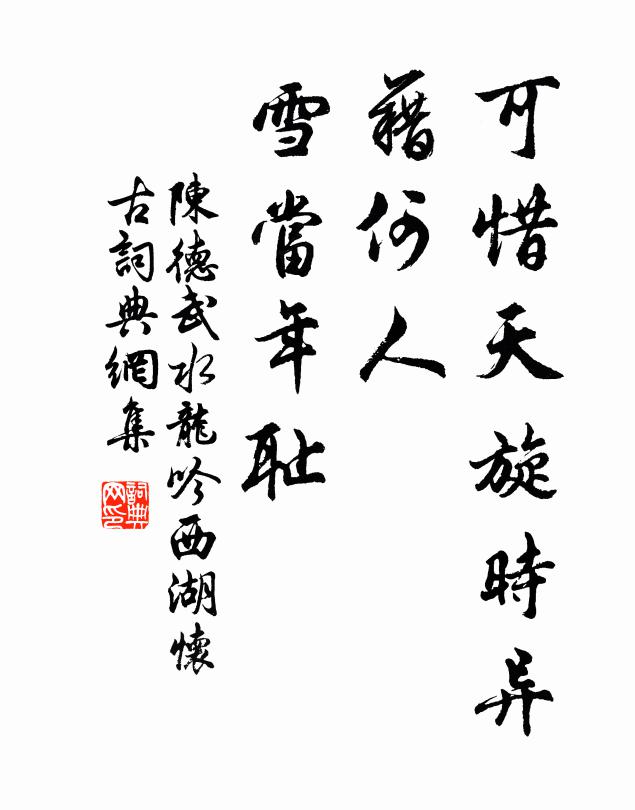 可惜天旋時异
藉何人
雪當年耻
陳德武水龍吟西湖懷
古詞典網集
詞典網印